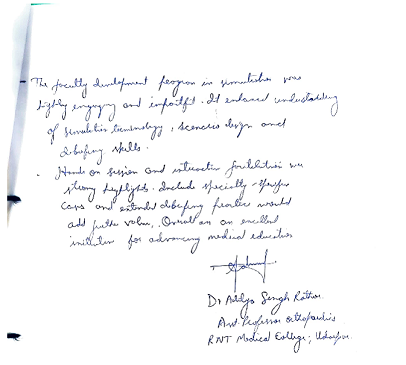 The faculty development program in simulation was
highly engaging and impactful. It enhanced understanding
of simulation terminology, scenario design and
debriefing skills.
Hands on session and interactive facilitation were
strong highlights. Include specialty-specific
cases and extended debriefing practice would
add further value. Overall an an excellent
initiative for advancing medical education
Dr Singh Rathor
Asst. Professor Orthopaedics
RNT Medical College, Udaipur